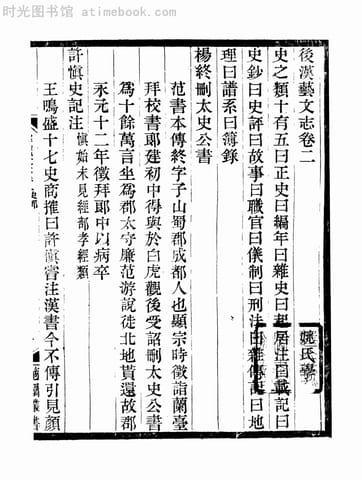 时光图书馆 atimebook.com
後漢藝文志卷二
姚氏學
史之類十有五曰正史曰編年曰雜史曰起居注曰載記曰
史鈔曰史評曰故事曰職官曰儀制曰刑法曰雜傳記曰地
理曰譜系曰簿錄
楊終刪太史公書
范書本傳終字子山蜀郡成都人也顯宗時徵詣蘭臺
拜校書郎建初中得與於白虎觀後受詔刪太史公書
為十餘萬言坐為郡太守廉范游說徙北地貰還故郡
永元十二年徵拜郎中以病卒
許慎史記注慎始末見經部孝經類
王鳴盛十七史商搉曰許慎嘗注漢書今不傳引見顏